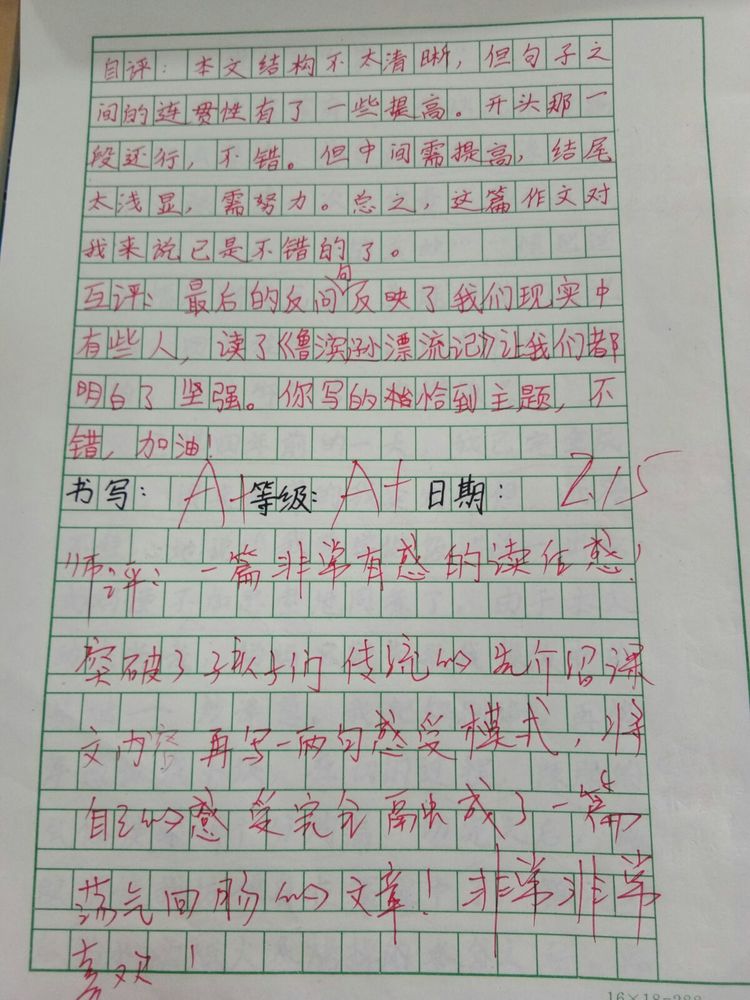 自评：本文结构不太清晰，但句子之
间的连贯性有了一些提高。开头那一
段还行，不错。但中间需提高，结尾
太浅显，需努力。总之，这篇作文对
我来说已是不错的了。
互评：最后的反问句反映了我们现实中
有些人，读了《鲁滨孙漂流记》让我们都
明白了坚强。你写的恰到主题，不
错，加油！
书写：A+等级：A+日期：2.15
师评：一篇非常有感的读后感！
突破了孩子们传统的先介绍课
文内容再写一两句感受模式，将
自己的感受完全融成了一篇
荡气回肠的文章！非常非常
喜欢！
16×18=288